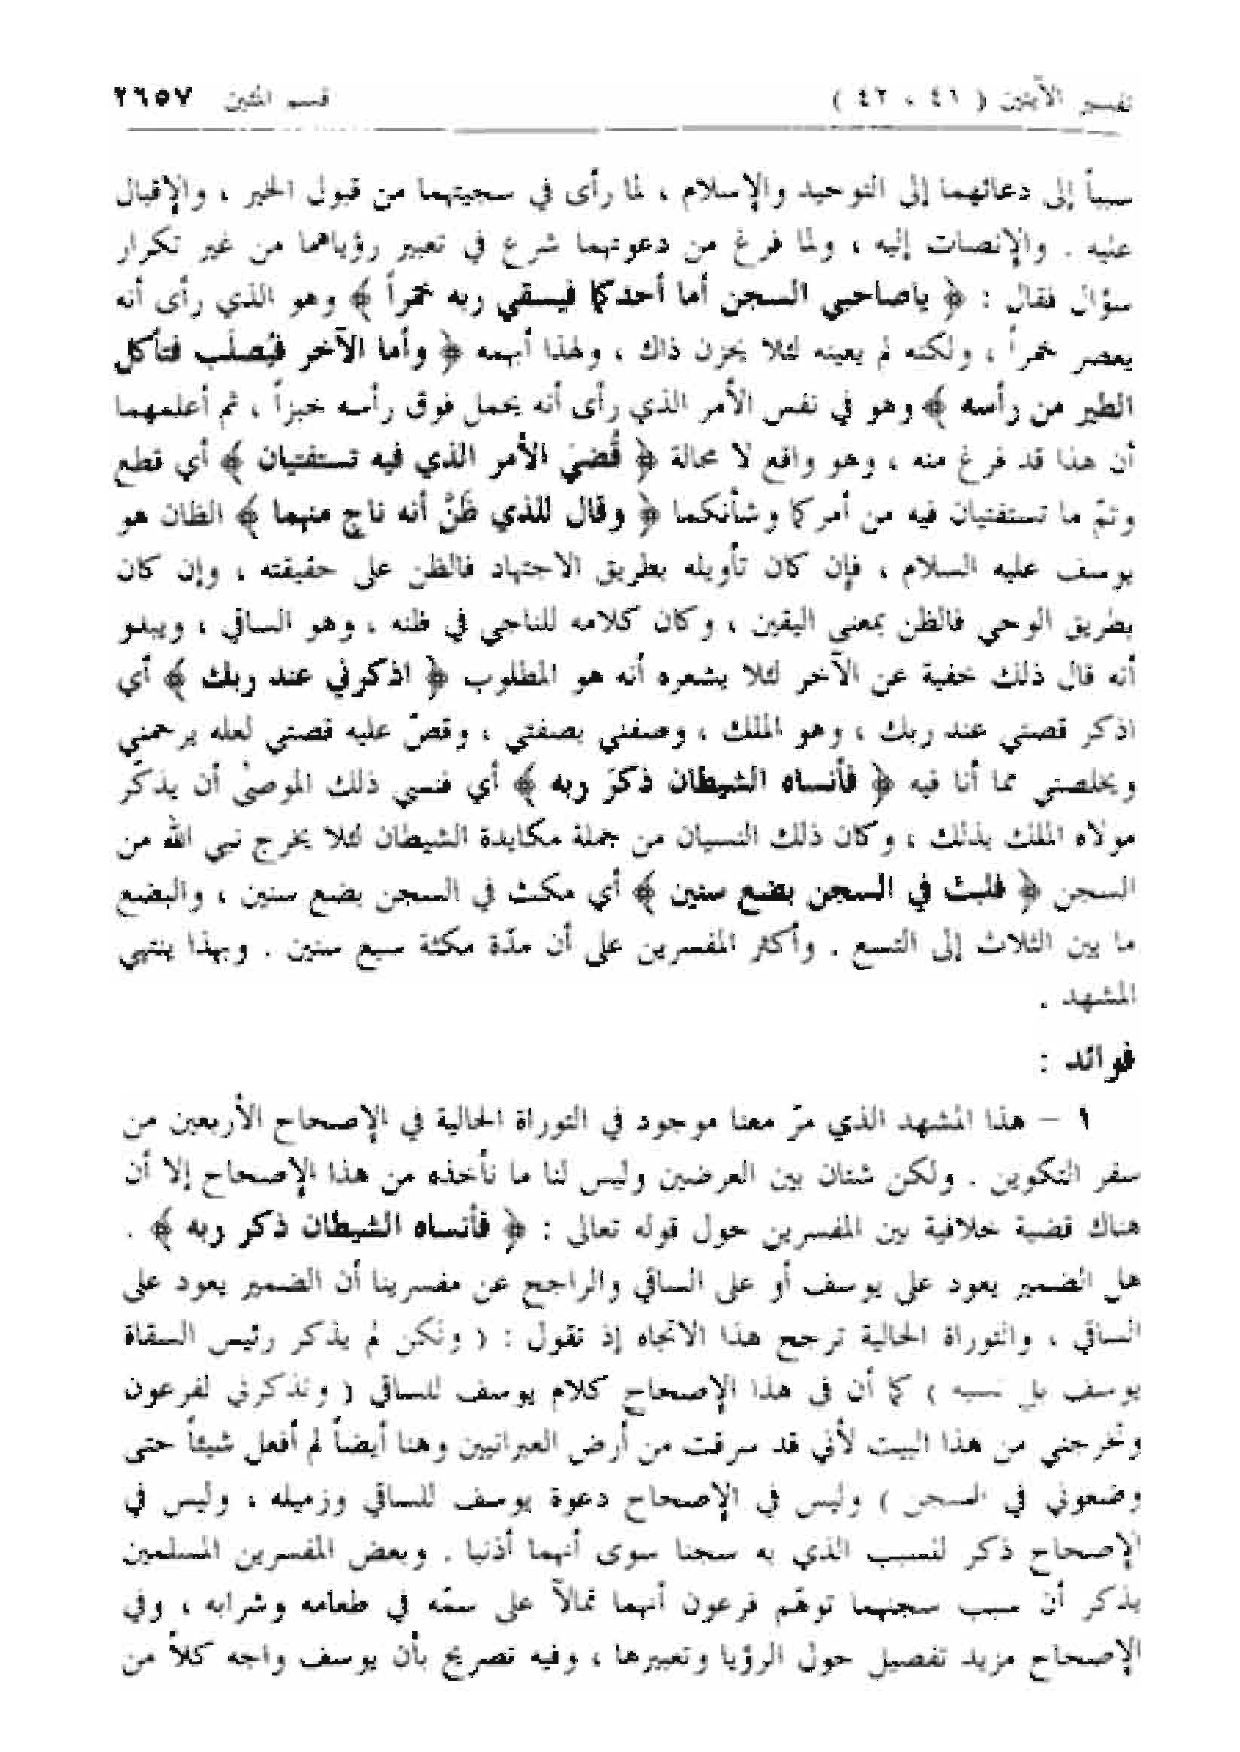 تفسير الآيتين ( ٤١ ، ٤٢ ) قسم المئين ٢٦٥٧
سبباً إلى دعائهما إلى التوحيد والإسلام ، لما رأى في سجيتهما من قبول الخير ، والإقبال
عليه . والإنصات إليه ، ولما فرغ من دعوتهما شرع في تعبير رؤياهما من غير تكرار
سؤال فقال : ﴿ ياصاحبي السجن أما أحدكما فيسقي ربه خمراً ﴾ وهو الذي رأى أنه
يعصر خمراً ، ولكنه لم يعينه لئلا يحزن ذاك ، ولهذا أبهمه ﴿ وأما الآخر فيُصلَب فتأكل
الطير من رأسه ﴾ وهو في نفس الأمر الذي رأى أنه يحمل فوق رأسه خبزاً ، ثم أعلمهما
أن هذا قد فرغ منه ، وهو واقع لا محالة ﴿ قُضيَ الأمر الذي فيه تستفتيان ﴾ أي قطع
وتمّ ما تستفتيان فيه من أمركما وشأنكما ﴿ وقال للذي ظَنَّ أنه ناجٍ منهما ﴾ الظان هو
يوسف عليه السلام ، فإن كان تأويله بطريق الاجتهاد فالظن على حقيقته ، وإن كان
بطريق الوحي فالظن بمعنى اليقين ، وكان كلامه للناجي في ظنه ، وهو الساقي ، ويبدو
أنه قال ذلك خفية عن الآخر لئلا يشعره أنه هو المطلوب ﴿ اذكرني عند ربك ﴾ أي
اذكر قصتي عند ربك ، وهو الملك ، وصفني بصفتي ، وقصّ عليه قصتي لعله يرحمني
ويخلصني مما أنا فيه ﴿ فأنساه الشيطان ذكرَ ربه ﴾ أي فنسي ذلك الموصىٰ أن يذكّر
مولاه الملك بذلك ، وكان ذلك النسيان من جملة مكايدة الشيطان لئلا يخرج نبي الله من
السجن ﴿ فلبث في السجن بضع سنين ﴾ أي مكث في السجن بضع سنين ، والبضع
ما بين الثلاث إلى التسع . وأكثر المفسرين على أن مدّة مكثة سبع سنين . وبهذا ينتهي
المشهد .
فوائد :
١ – هذا المشهد الذي مرّ معنا موجود في التوراة الحالية في الإصحاح الأربعين من
سفر التكوين . ولكن شتان بين العرضين وليس لنا ما نأخذه من هذا الإصحاح إلا أن
هناك قضية خلافية بين المفسرين حول قوله تعالى : ﴿ فأنساه الشيطان ذكر ربه ﴾ .
هل الضمير يعود على يوسف أو على الساقي والراجح عن مفسرينا أن الضمير يعود على
الساقي ، والتوراة الحالية ترجح هذا الاتجاه إذ تقول : ( ولكن لم يذكر رئيس السقاة
يوسف بل نسيه ) كما أن في هذا الإصحاح كلام يوسف للساقي ( وتذكرني لفرعون
وتخرجني من هذا البيت لأني قد سرقت من أرض العبرانيين وهنا أيضاً لم أفعل شيئاً حتى
وضعوني في السجن ) وليس في الإصحاح دعوة يوسف للساقي وزميله ، وليس في
الإصحاح ذكر للسبب الذي به سجنا سوى أنهما أذنبا . وبعض المفسرين المسلمين
يذكر أن سبب سجنهما توهّم فرعون أنهما تمالآ على سمّه في طعامه وشرابه ، وفي
الإصحاح مزيد تفصيل حول الرؤيا وتعبيرها ، وفيه تصريح بأن يوسف واجه كلاً من